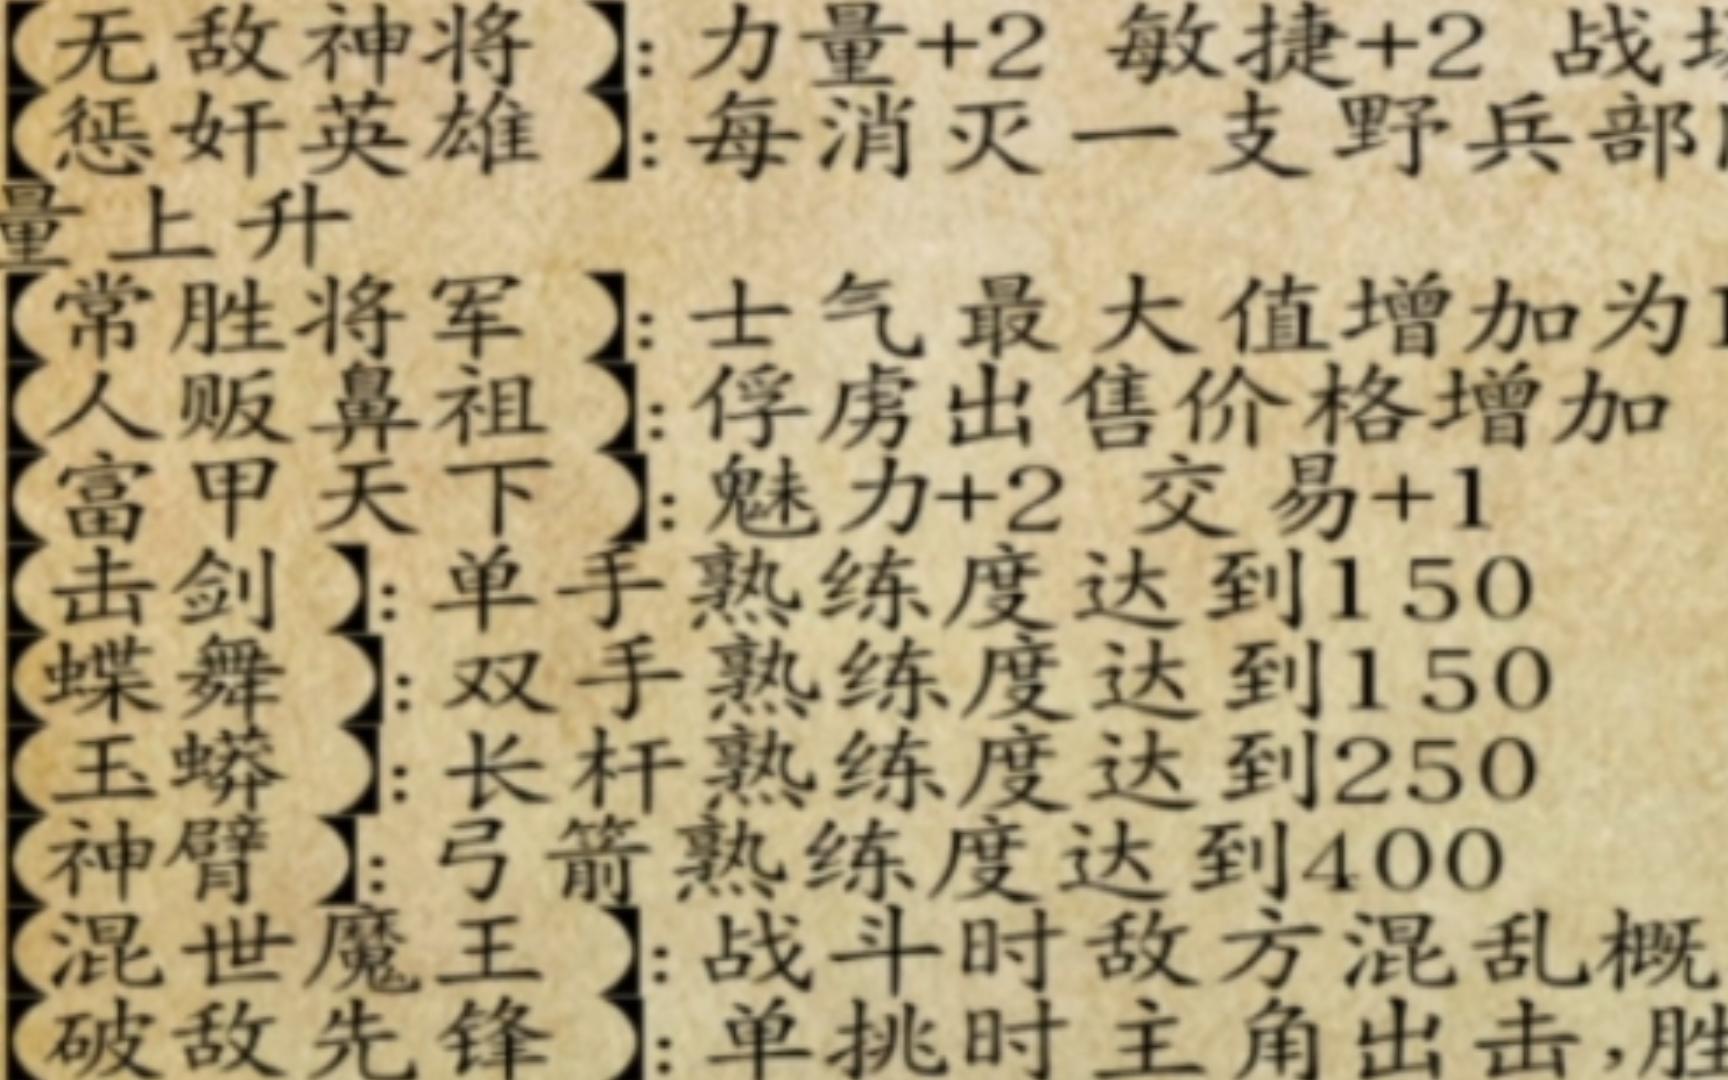 【无敌神将】:力量+2 敏捷+2 战场
【惩奸英雄】:每消灭一支野兵部
量上升
【常胜将军】:士气最大值增加为1
【人贩鼻祖】:俘虏出售价格增加
【富甲天下】:魅力+2 交易+1
【击剑】:单手熟练度达到150
【蝶舞】:双手熟练度达到150
【玉蟒】:长杆熟练度达到250
【神臂】:弓箭熟练度达到400
【混世魔王】:战斗时敌方混乱概
【破敌先锋】:单挑时主角出击,胜